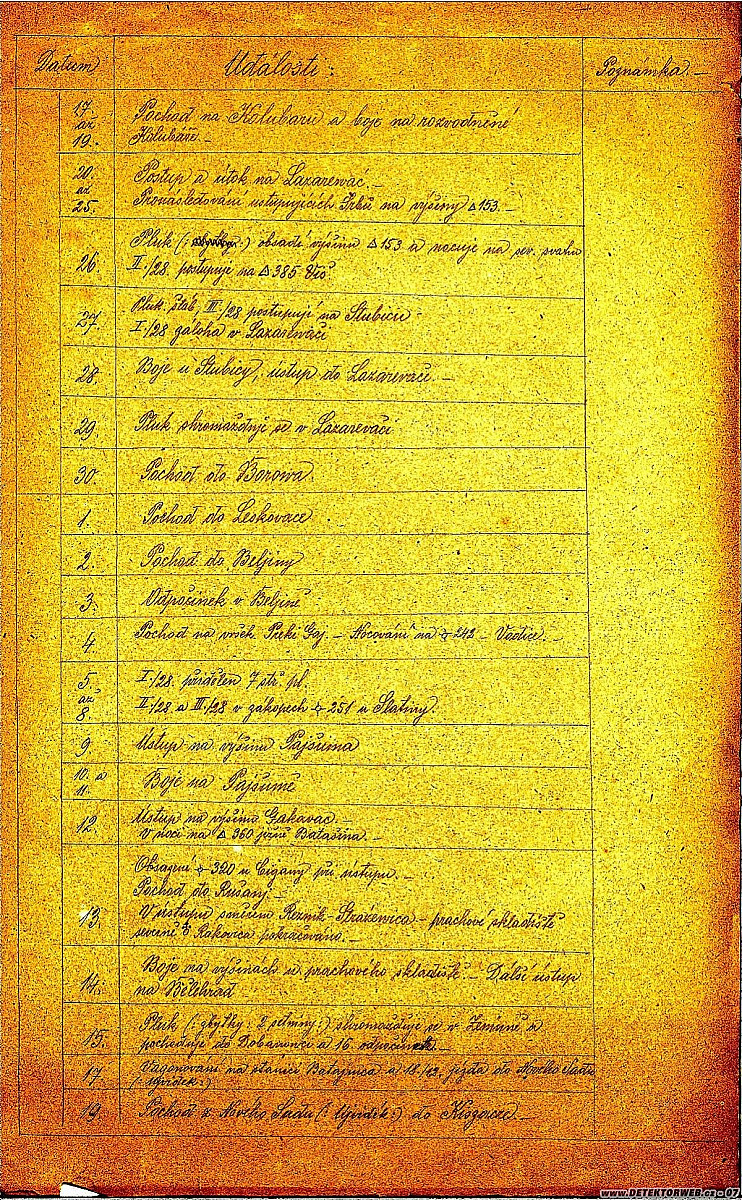 Datum Události: Poznamka. —
17. až 19. Pochod na Kolubaru a boje na rozvodněné
Kolubáře. —
20. až 25. Postup a útok na Lazarewač. —
Pronásledování ustupujících Srbů na výšiny △153. —
26. Pluk (: :) obsadí výšinu △153 a nocuje na sev. svahu
II./28. postupuje na △385
27. Pluk. štáb, III./28 postupují na Stubicu —
I./28 záloha v Lazarevači
28. Boje u Stubicy, ústup do Lazarevače. —
29 Pluk shromažďuje se v Lazarevači
30. Pochod do Borowa.
1. Pochod do Leskovace —
2. Pochod do Beljiny
3. Odpočinek v Beljině
4 Pochod na vrch Gaj. — Nocování na 242 —
5. až 8. I./28. přidělen 7 stř. pl.
II./28 a III./28 v zákopech 251 u Slatiny.
9. Ústup na výšinu Pajšina
10. a 11. Boje na
12. Ústup na výšinu Gakavac. —
V noci na △ 360 jižně Batašina. —
13. Obsazení 320 u Cigany při ústupu. —
Pochod do Rušanj. —
V ústupu směrem Resnik - Straževica - prachové skladiště
severně Rakovica pokračováno. —
14. Boje na výšinách u prachového skladiště. — Další ústup
na Bělehrad
15. Pluk (: zbytky 2 setniny :) shromažďuje se v Zemuně a
pochoduje do Dobanovci a 16. odpočinek. —
17. Vagonování na stanici Batajnica a 18./12. jízda do Nového Sadu
(: Ujvidek :)
19. Pochod z Nového Sadu (: Ujvidék :) do —
www.DETEKTORWEB.cz-07